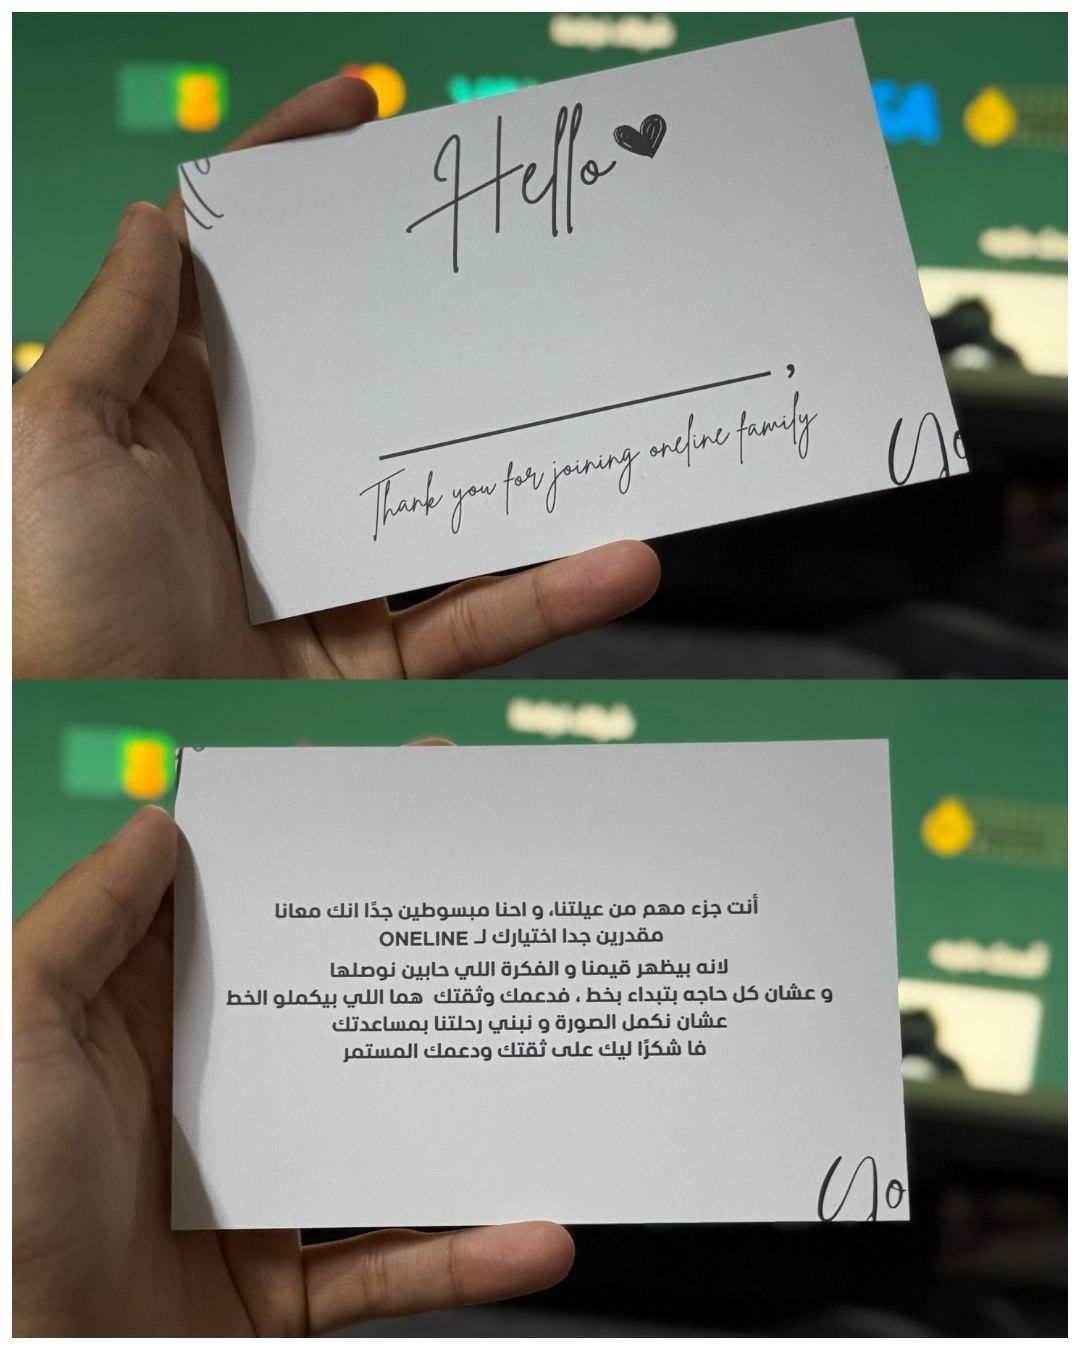 Hello
,
Thank you for joining oneline family
Yo
أنت جزء مهم من عيلتنا، و احنا مبسوطين جدًا انك معانا
مقدرين جدا اختيارك لـ ONELINE
لانه بيظهر قيمنا و الفكرة اللي حابين نوصلها
و عشان كل حاجه بتبداء بخط ، فدعمك وثقتك هما اللي بيكملو الخط
عشان نكمل الصورة و نبني رحلتنا بمساعدتك
فا شكرًا ليك على ثقتك ودعمك المستمر
Yo